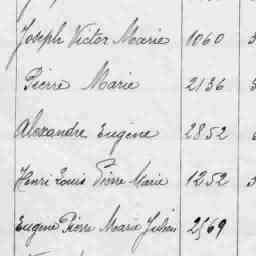 Joseph Victor Marie 1060
Pierre Marie 2136
Alexandre Eugène 2852
Henri Louis Pierre Marie 1252
Eugène Pierre Marie Julien 2569